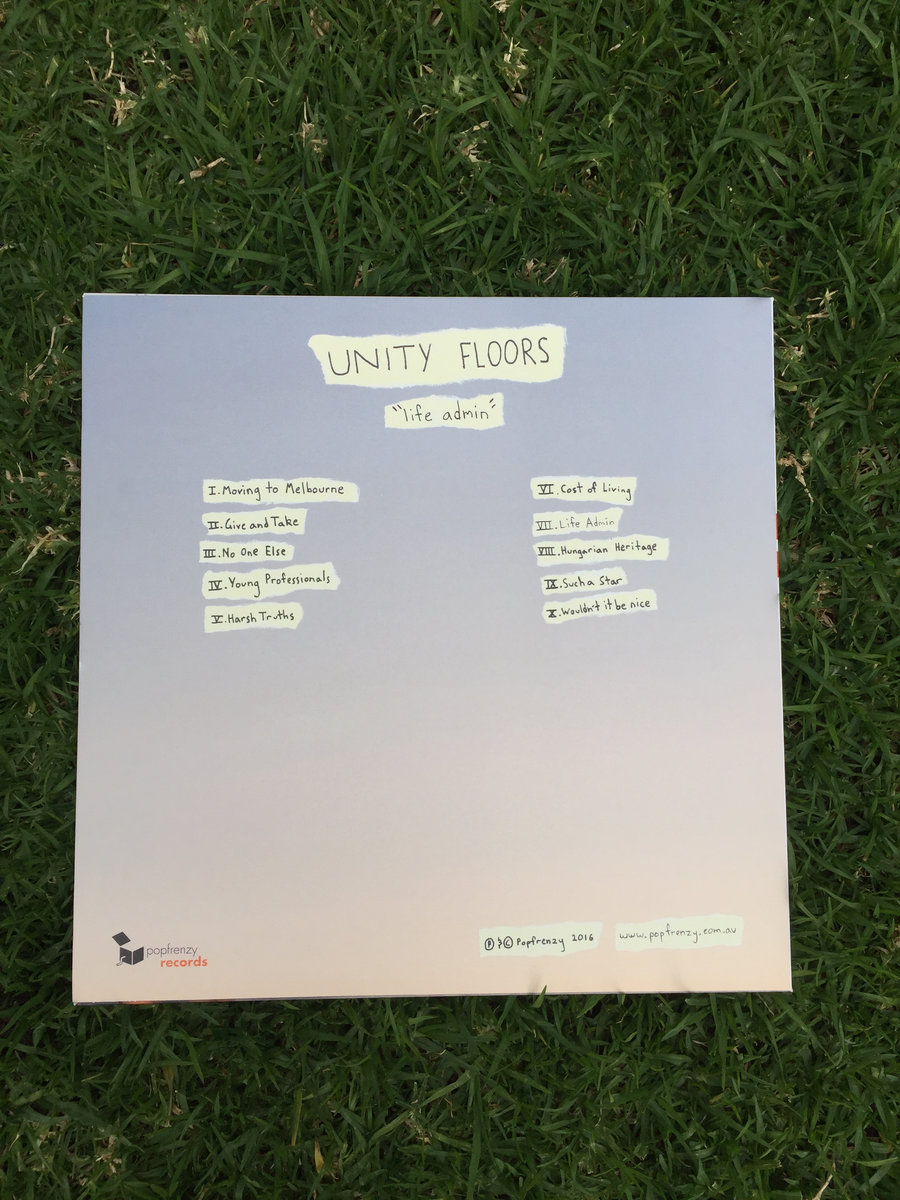 UNITY FLOORS
"life admin"
I. Moving to Melbourne
II. Give and Take
III. No One Else
IV. Young Professionals
V. Harsh Truths
VI. Cost of Living
VII. Life Admin
VIII. Hungarian Heritage
IX. Such a Star
X. Wouldn't it be nice
popfrenzy
records
Ⓟ & © Popfrenzy 2016
www.popfrenzy.com.au